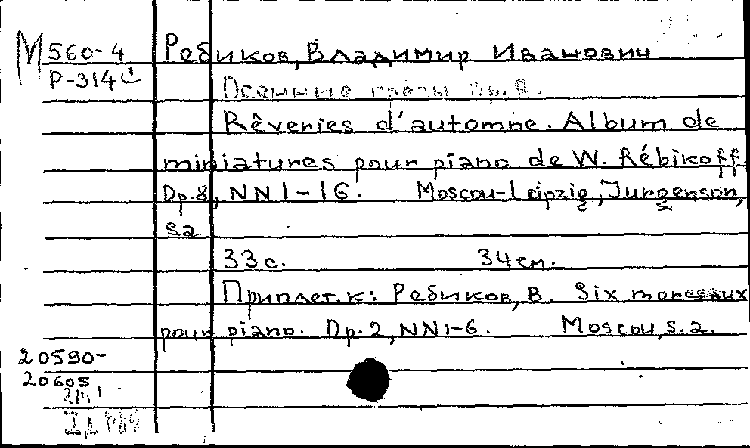 М 560-4 Ребиков, Владимир Иванович
Р-314
Осенние грезы Op. 8.
Rêveries d'automne. Album de
miniatures pour piano de W. Rébikoff.
Op. 8, NN 1-16. Moscou-Leipzig, Jurgenson,
s.a
33 с. 34 см.
Приплет. к: Ребиков, В. Six morceaux
pour piano. Op. 2, NN 1-6. Moscou, s.a.
20590-
20605